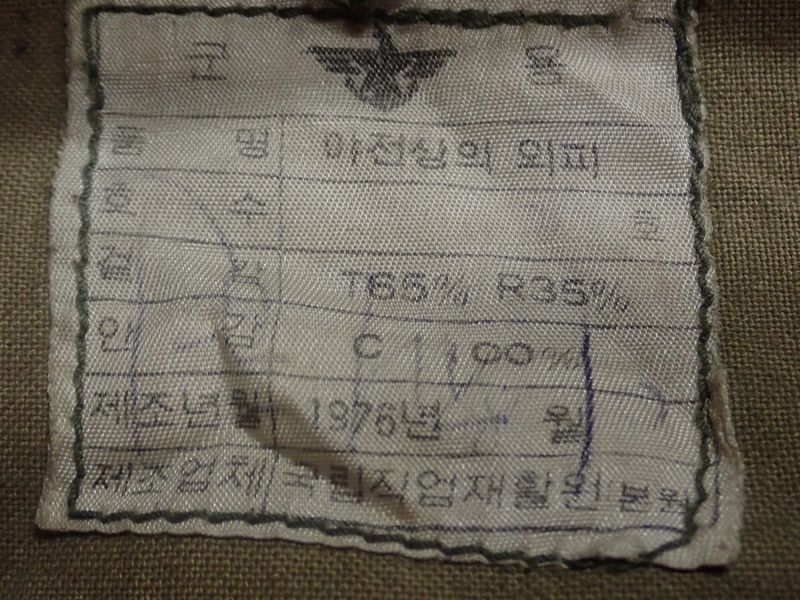 군 용
품 명 야전상의 외피
호 수 호
겉 감 T65% R35%
안 감 C 100%
제조년월 1976년 월
제조업체 국립직업재활원 분원